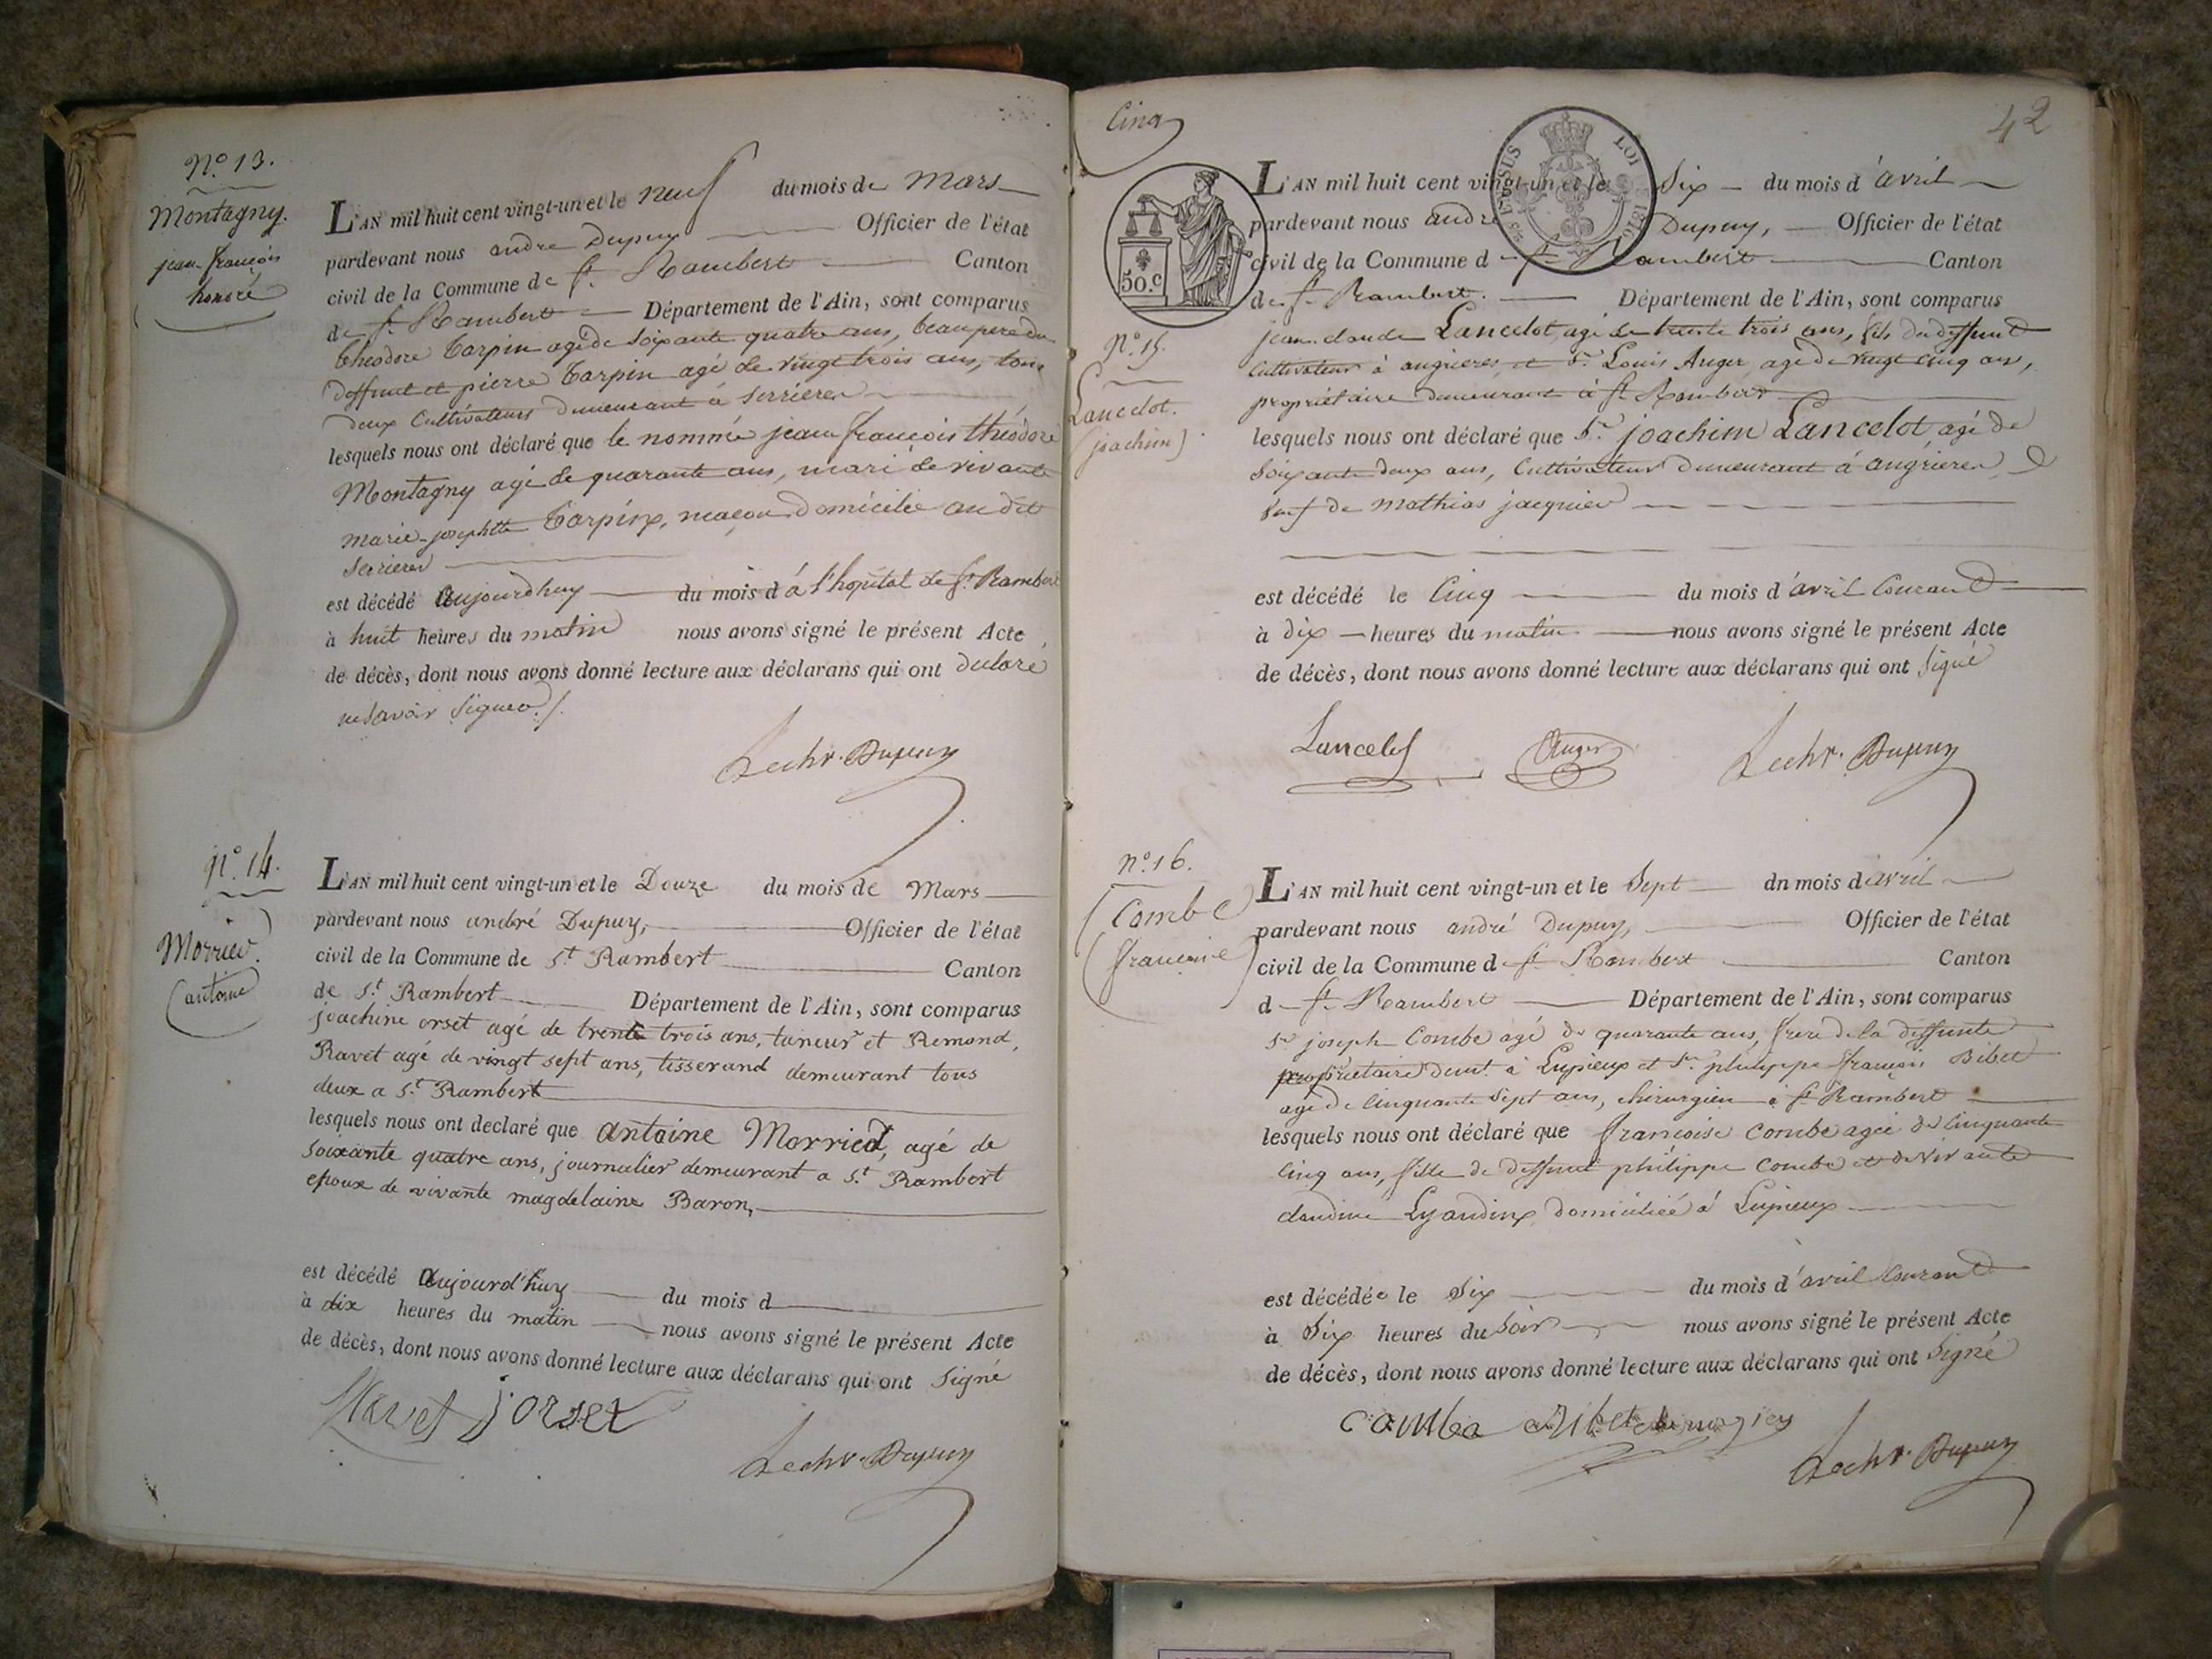 N.o 13.
Montagny.
jean françois
honoré
L'AN mil huit cent vingt-un et le neuf du mois de Mars
pardevant nous andre Dupuy Officier de l'état
civil de la Commune de St. Rambert Canton
de St. Rambert Département de l'Ain, sont comparus
théodore Carpin agé de soixante quatre ans, beaupere du
deffunt et pierre Carpin agé de vingt trois ans, tous
deux Cultivateurs demeurant à serrieres
lesquels nous ont déclaré que le nommé jean françois théodore
Montagny agé de quarante ans, mari de vivante
marie josephtte Carpin, maçon domicilié au dit
serrieres
est décédé aujourdhuy du mois d à l'hopital de St. Rambert
à huit heures du matin nous avons signé le présent Acte
de décès, dont nous avons donné lecture aux déclarans qui ont declaré
ne savoir signer./.
Lechr. Dupuy
n.o 14.
Morrier.
antoine
L'AN mil huit cent vingt-un et le Douze du mois de Mars
pardevant nous andré Dupuy, Officier de l'état
civil de la Commune de St Rambert Canton
de St. Rambert Département de l'Ain, sont comparus
joachine orset agé de trente trois ans, taneur et Remond,
Ravet agé de vingt sept ans, tisserand demeurant tous
deux a St. Rambert
lesquels nous ont declaré que antoine Morried, agé de
soixante quatre ans, journalier demeurant a St. Rambert
epoux de vivante magdelaine Baron,
est décédé aujourd'huy du mois d
à dix heures du matin nous avons signé le présent Acte
de décès, dont nous avons donné lecture aux déclarans qui ont signé
Ravet j orset
Lechr. Dupuy
Cinq
42
50.C
LOI 1816
N.o 15.
Lancelot.
(joachim)
L'AN mil huit cent vingt-un et le Six du mois d'avril
pardevant nous andré Dupuy, Officier de l'état
civil de la Commune d St Rambert Canton
de St. Rambert. Département de l'Ain, sont comparus
jean claude Lancelot, agé de trente trois ans, fils du deffunt
Cultivateur à angrieres, et Sr. Louis Auger, agé de vingt cinq ans,
propriétaire demeurant à St. Rambert
lesquels nous ont déclaré que Sr. joachim Lancelot, agé de
soixante deux ans, Cultivateur demeurant à angrieres,
veuf de mathias jacquier
est décédé le Cinq du mois d'avril Courant
à dix heures du matin nous avons signé le présent Acte
de décès, dont nous avons donné lecture aux déclarans qui ont signé
Lancelot Auger Lechr. Dupuy
n.o 16.
Combe
françoise
L'AN mil huit cent vingt-un et le Sept dn mois d'avril
pardevant nous andré Dupuy, Officier de l'état
civil de la Commune d St. Rambert Canton
d St. Rambert Département de l'Ain, sont comparus
Sr. joseph Combe agé de quarante ans, frere de la deffunte
propriétaire demt. à Lupieux et Sr. philippe françois Bibet
agé de Cinquante Sept ans, chirurgien à St. Rambert
lesquels nous ont déclaré que françoise Combe agée de Cinquante
Cinq ans, fille de deffunt philippe Combe et de vivante
claudine Lyaudin, domiciliée à Lupieux
est décédée le Six du mois d'avril Courant
à Six heures du soir nous avons signé le présent Acte
de décès, dont nous avons donné lecture aux déclarans qui ont signé
Combe
Lechr. Dupuy